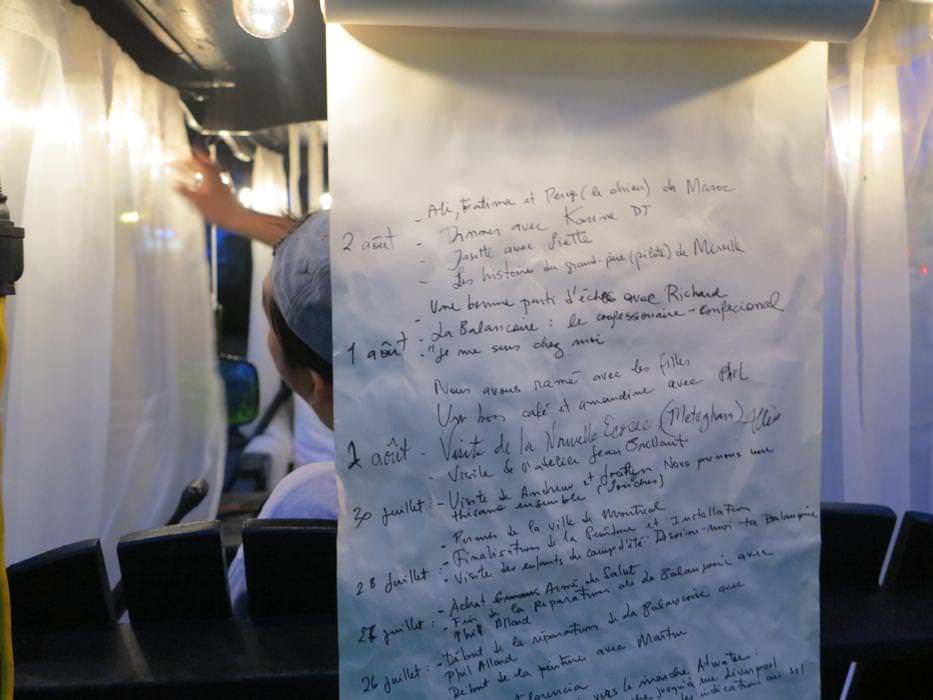 - Ali, Fatima et Percy (le chien) du Maroc
2 août - Dinner avec Karine DJ
- Josette avec
- Les histoires du grand-père (pilote) de Mireille
Une bonne parti d'échecs avec Richard
1 août - La Balancoire : le confessionaire - confecional
- "Je me sens chez moi
Nous avons ramé avec les filles
Un bon café et amandine avec PHIL
1 août - Visite de la Nouvelle Ecosse (Meteghan)
- Visite de l'atelier Jean Brillant
30 juillet : - Visite de Andrew et Nous prenons une
thisane ensemble
- Permis de la ville de Montreal
28 juillet : - Finalisation de la Peinture et Installation
- Visite des enfants du camp d'été: Dessine-moi ta Balancoire
27 juillet : - Achat du Salut
- Fin de la Reparation de la Balancoire avec
Phil Allard
26 juillet : - Début de la réparation de la Balancoire avec
Phil Allard
Début de la peinture avec Martin
Florencia
vers le marché Atwater :
jusqu'à rue
les indication au sol